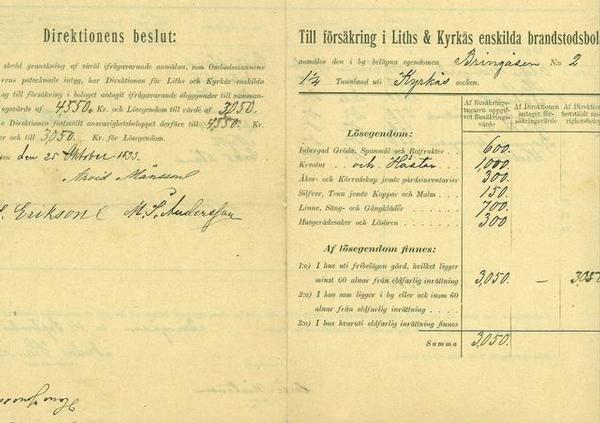 Direktionens beslut:
skedd granskning af såväl ifrågavarande anmälan, som Ombudsmannens
tecknade intyg, har Direktionen för Liths och Kyrkås enskilda
till försäkring i bolaget antagit ifrågavarande åbyggnader till samman-
värde af 4550, Kr. och Lösegendom till värde af 3050.
Direktionen fastställt ansvarighetsbeloppet derföre till 4550. Kr.
och till 3050. Kr. för Lösegendom.
den 25 Oktober 1893.
Arvid Månsson
Erikson M. S. Andersson
Till försäkring i Liths & Kyrkås enskilda brandstodsbol
anmäles den i by belägna egendomen Bringåsen No 2
1¼ Tunnland uti Kyrkås socken.
Af försäkrings-tagaren uppgifvet försäkringsvärde
Af Direktionen antaget försäkringsvärde
Af Direktionen fastställdt
Lösegendom:
Inbergad Gröda, Spanmål och Rotfrukter 600.
Kreatur och Hästar 1,000.
Åker- och Körredskap jemte gårdsinventarier 300.
Silfver, Tenn jemte Koppar och Malm 150.
Linne, Säng- och Gångkläder 700.
Husgerådssaker och Lösören 300
Af lösegendom finnes:
1:o) I hus uti fribelägen gård, hvilket ligger
minst 60 alnar från eldfarlig inrättning 3,050. — 3050
2:o) I hus som ligger i by eller och inom 60
alnar från eldfarlig inrättning
3:o) I hus hvaruti eldfarlig inrättning finnes
Summa 3,050.